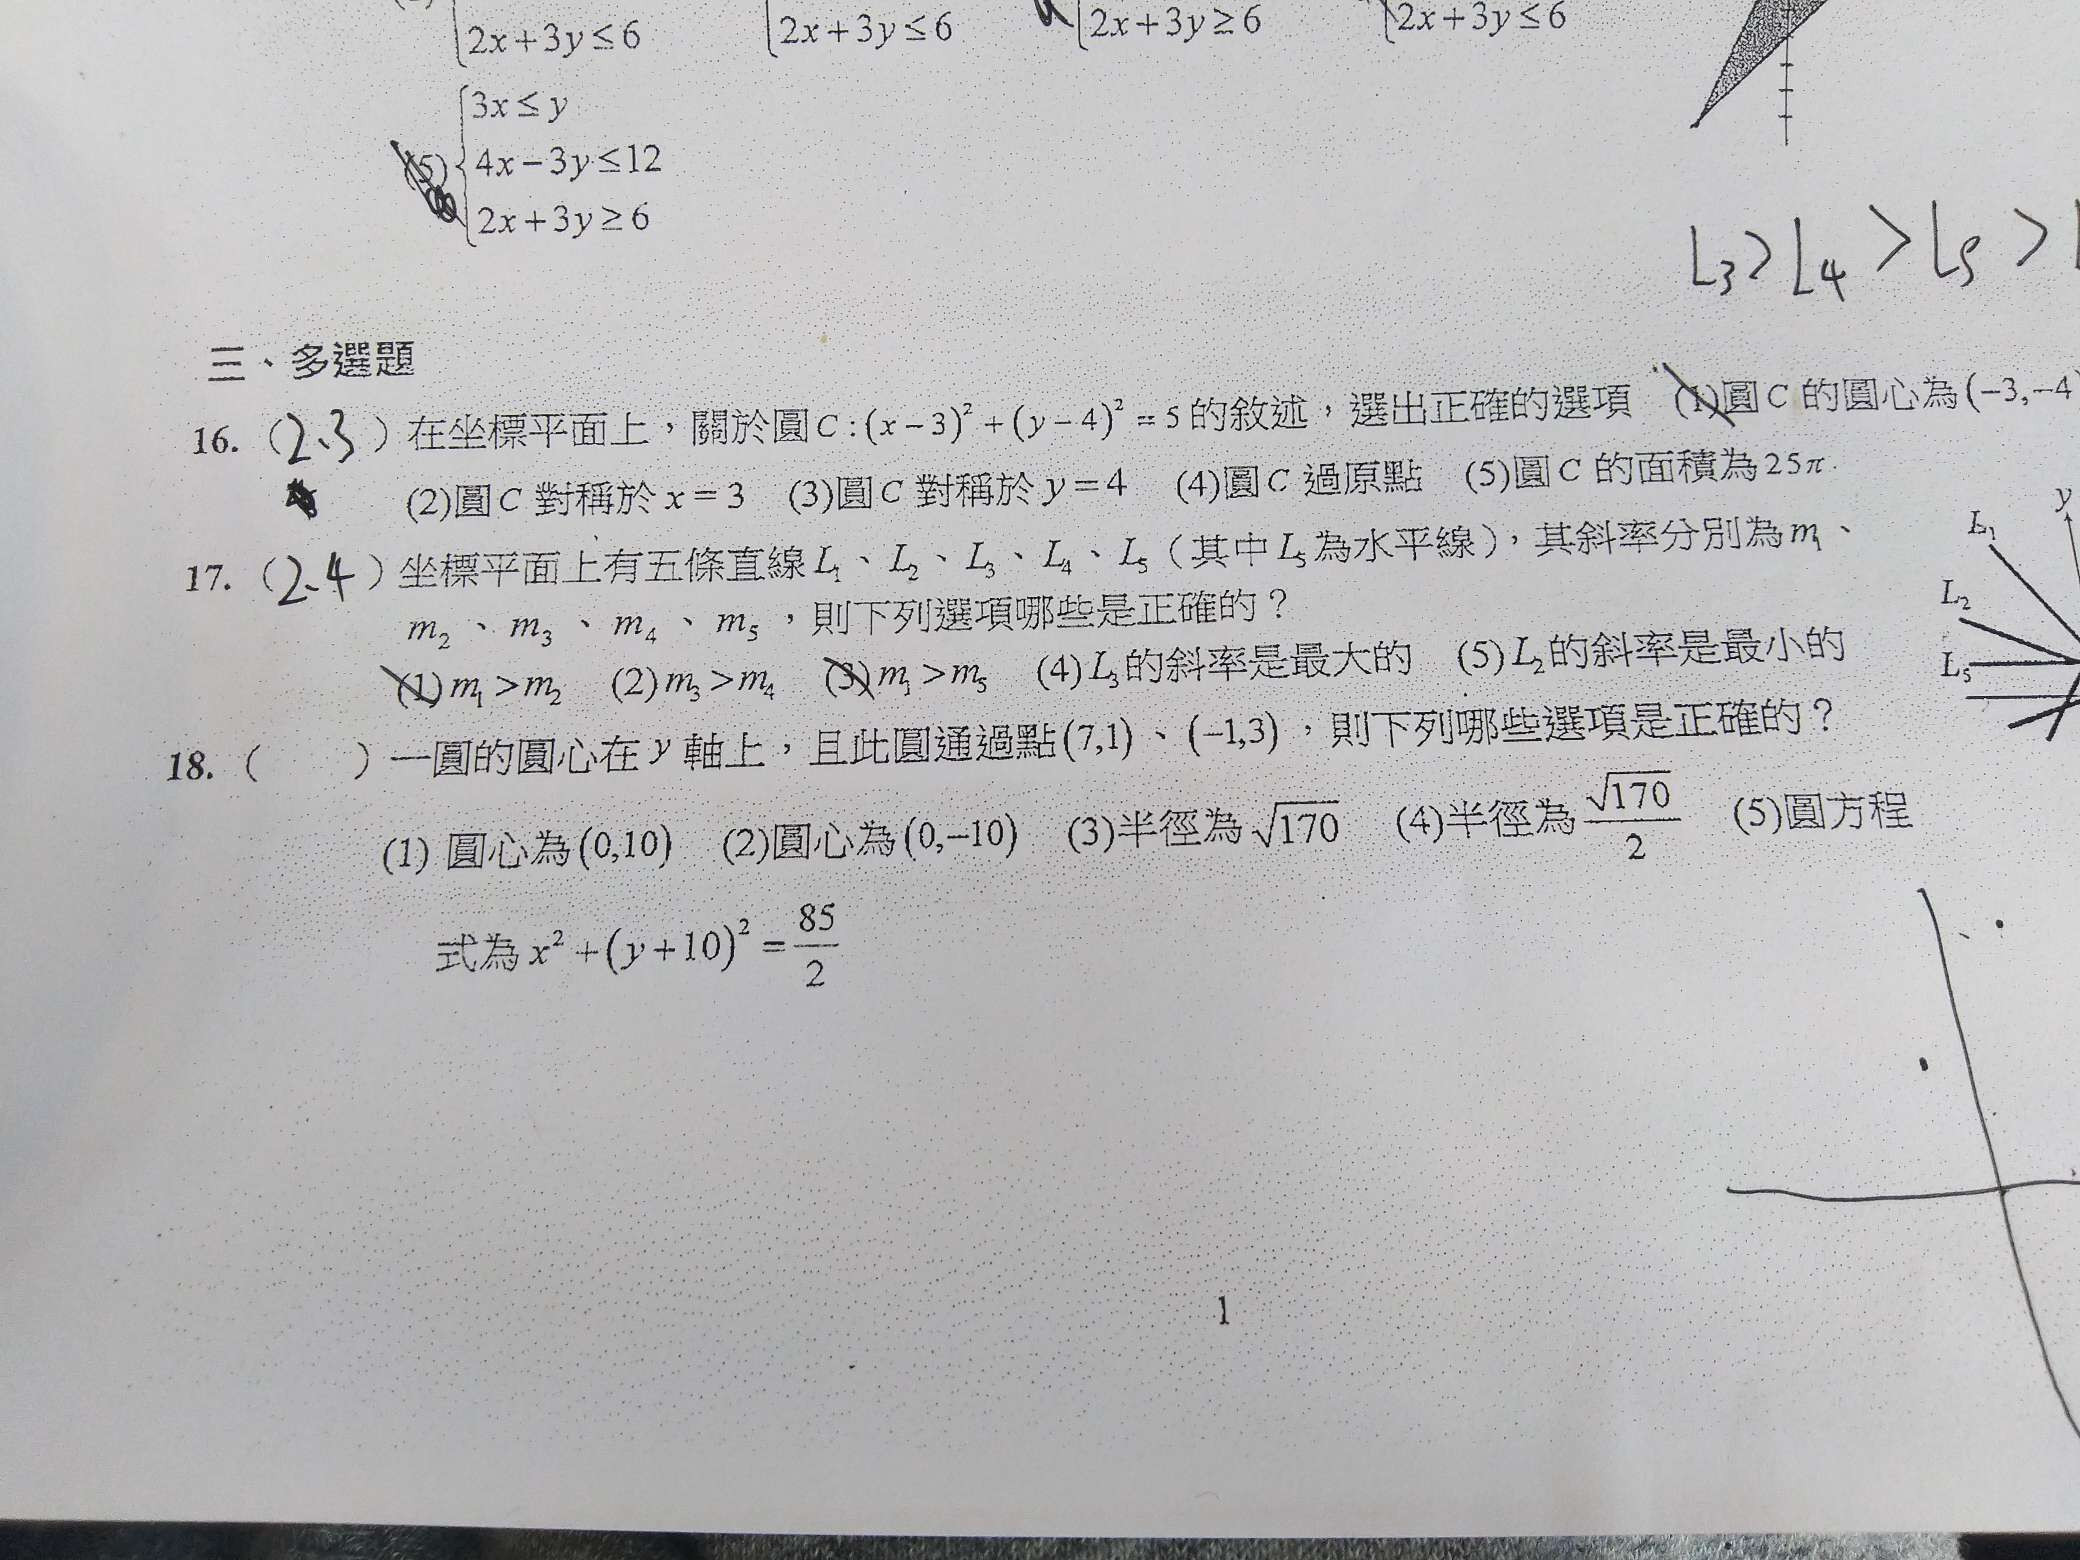 2x+3y≤6 2x+3y≤6 2x+3y≥6 2x+3y≤6
3x≤y
(5) 4x−3y≤12
2x+3y≥6
L3>L4>L5>
三、多選題
16.（2.3）在坐標平面上，關於圓C:(x−3)²+(y−4)²=5的敘述，選出正確的選項 (1)圓C的圓心為(−3,−4
(2)圓C對稱於x=3 (3)圓C對稱於y=4 (4)圓C過原點 (5)圓C的面積為25π.
17.（2.4）坐標平面上有五條直線L₁、L₂、L₃、L₄、L₅（其中L₅為水平線），其斜率分別為m₁、
m₂、m₃、m₄、m₅，則下列選項哪些是正確的？
(1)m₁>m₂ (2)m₃>m₄ (3)m₁>m₅ (4)L₃的斜率是最大的 (5)L₂的斜率是最小的
y
L₁
L₂
L₅
18.（ ）一圓的圓心在y軸上，且此圓通過點(7,1)、(−1,3)，則下列哪些選項是正確的？
(1) 圓心為(0,10) (2)圓心為(0,−10) (3)半徑為√170 (4)半徑為√170/2 (5)圓方程
式為x²+(y+10)²=85/2
1